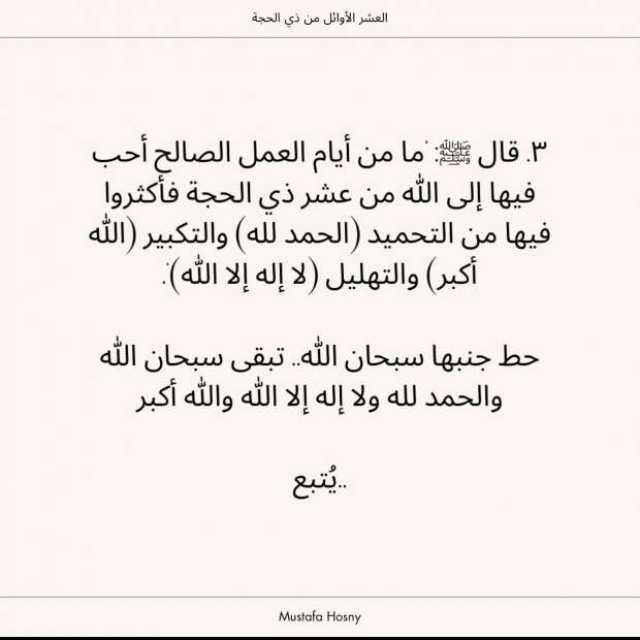 العشر الأوائل من ذي الحجة
٣. قال ﷺ: 'ما من أيام العمل الصالح أحب
فيها إلى الله من عشر ذي الحجة فأكثروا
فيها من التحميد (الحمد لله) والتكبير (الله
أكبر) والتهليل (لا إله إلا الله)'.
حط جنبها سبحان الله.. تبقى سبحان الله
والحمد لله ولا إله إلا الله والله أكبر
..يُتبع
Mustafa Hosny